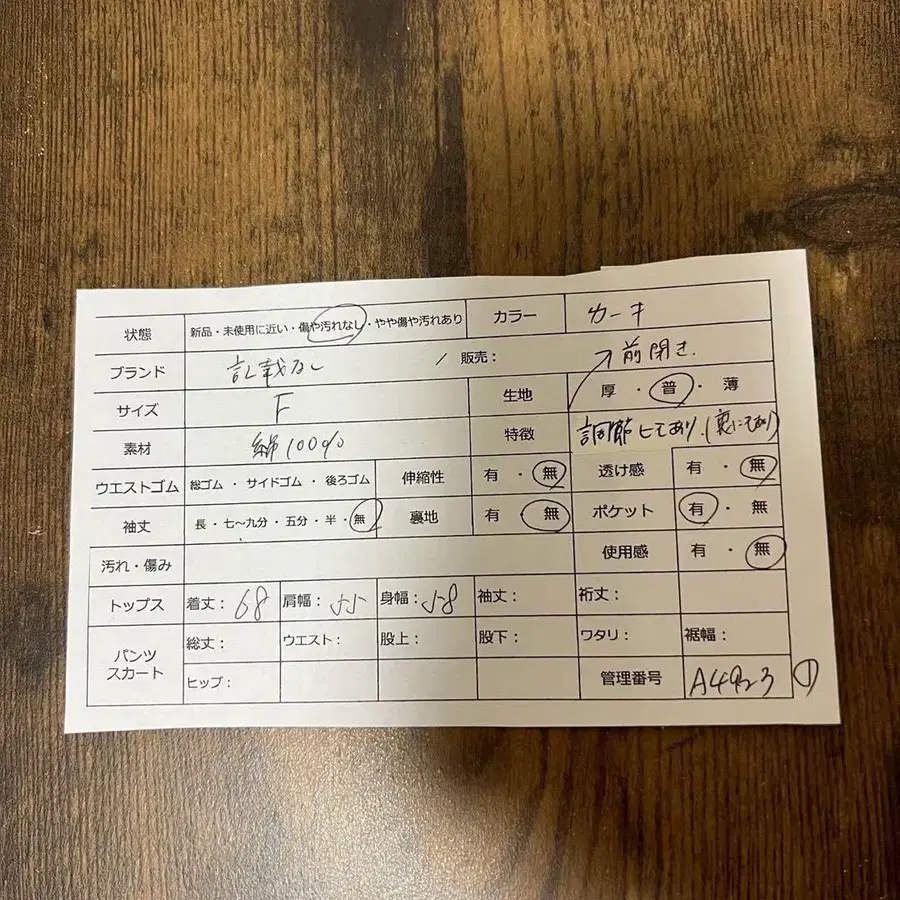 状態 新品・未使用に近い・傷や汚れなし・やや傷や汚れあり カラー カーキ
ブランド 記載なし / 販売：
サイズ F 生地 厚 ・ 普 ・ 薄
素材 綿100% 特徴 前開き.
調節ヒモあり.(裏にもあり)
ウエストゴム 総ゴム ・ サイドゴム ・ 後ろゴム 伸縮性 有 ・ 無 透け感 有 ・ 無
袖丈 長・七〜九分・五分・半・無 裏地 有 ・ 無 ポケット 有 ・ 無
汚れ・傷み 使用感 有 ・ 無
トップス 着丈：68 肩幅：55 身幅：58 袖丈： 裄丈：
パンツ スカート 総丈： ウエスト： 股上： 股下： ワタリ： 裾幅：
ヒップ： 管理番号 A4923 ①